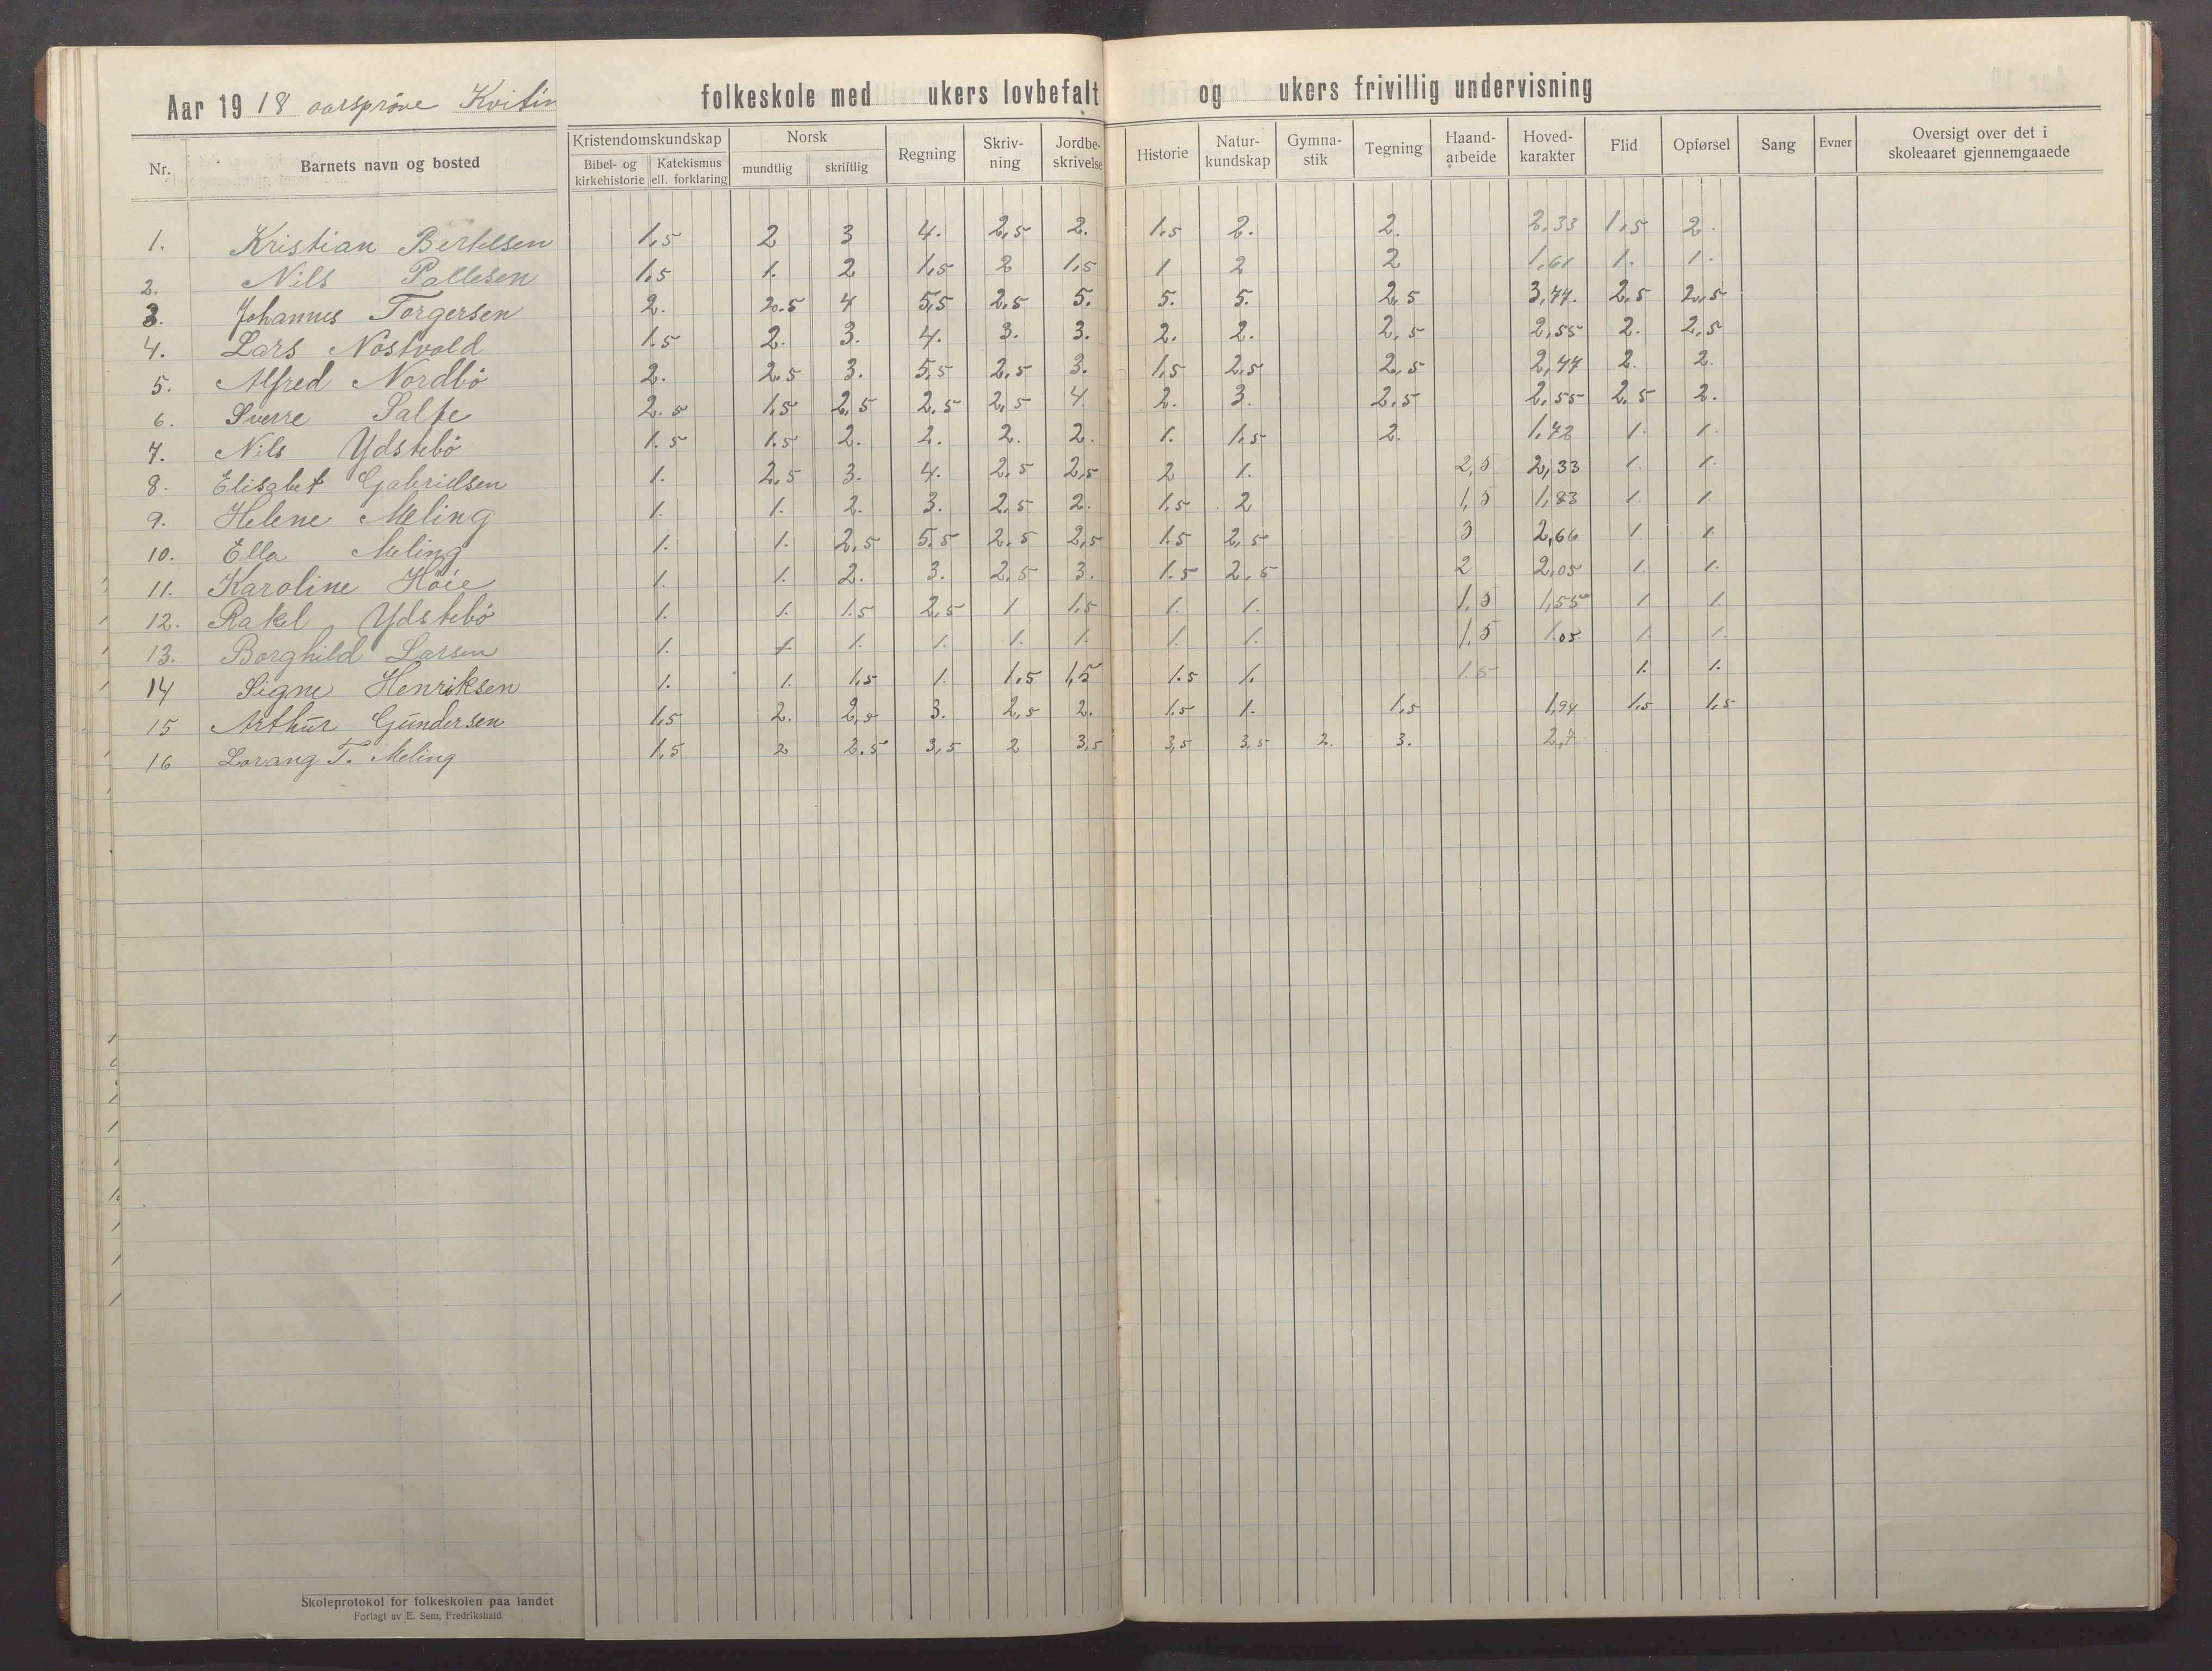 Aar 1918 aarsprøve Kvitin folkeskole med ukers lovbefalt og ukers frivillig undervisning
Nr. Barnets navn og bosted Kristendomskundskap Bibel- og kirkehistorie Katekismus ell. forklaring Norsk mundtlig skriftlig Regning Skriv-ning Jordbe-skrivelse Historie Natur-kundskap Gymna-stik Tegning Haand-arbeide Hoved-karakter Flid Opførsel Sang Evner Oversigt over det i skoleaaret gjennemgaaede
1. Kristian Bertelsen 1,5 2 3 4. 2,5 2. 1,5 2. 2. 2,33 1,5 2.
2. Nils Pallesen 1,5 1. 2 1,5 2 1,5 1 2 2 1,61 1. 1.
3. Johannes Torgersen 2. 2.5 4 5,5 2,5 5. 5. 5. 2,5 3,77. 2,5 2,5
4. Lars Nostvold 1.5 2. 3. 4. 3. 3. 2. 2. 2,5 2,55 2. 2,5
5. Alfred Nordbö 2. 2.5 3. 5,5 2,5 3. 1,5 2,5 2,5 2,77 2. 2.
6. Sverre Salte 2.5 1,5 2,5 2,5 2,5 4. 2. 3. 2,5 2,55 2,5 2.
7. Nils Ydstebö 1.5 1.5 2. 2. 2. 2. 1. 1,5 2. 1,72 1. 1.
8. Elisabet Gabrielsen 1. 2,5 3. 4. 2,5 2,5 2 1. 2,5 2,33 1. 1.
9. Helene Meling 1. 1. 2. 3. 2,5 2. 1.5 2 1,5 1,83 1. 1.
10. Ella Meling 1. 1. 2,5 5,5 2,5 2,5 1.5 2,5 3 2,66 1. 1.
11. Karoline Höie 1. 1. 2. 3. 2,5 3. 1.5 2,5 2 2,05 1. 1.
12. Rakel Ydstebö 1. 1. 1.5 2,5 1 1,5 1. 1. 1,5 1,55 1 1.
13. Borghild Larsen 1. 1. 1. 1. 1. 1. 1. 1. 1,5 1.05 1. 1.
14 Signe Henriksen 1. 1. 1,5 1. 1.5 1,5 1.5 1. 1.5 1. 1.
15 Arthur Gundersen 1,5 2. 2,5 3. 2,5 2. 1.5 1. 1,5 1,94 1,5 1,5
16 Lorang T. Meling 1,5 2 2.5 3,5 2 3,5 3,5 3,5 2. 3. 2,7
Skoleprotokol for folkeskolen paa landet
Forlagt av E. Sem, Fredrikshald